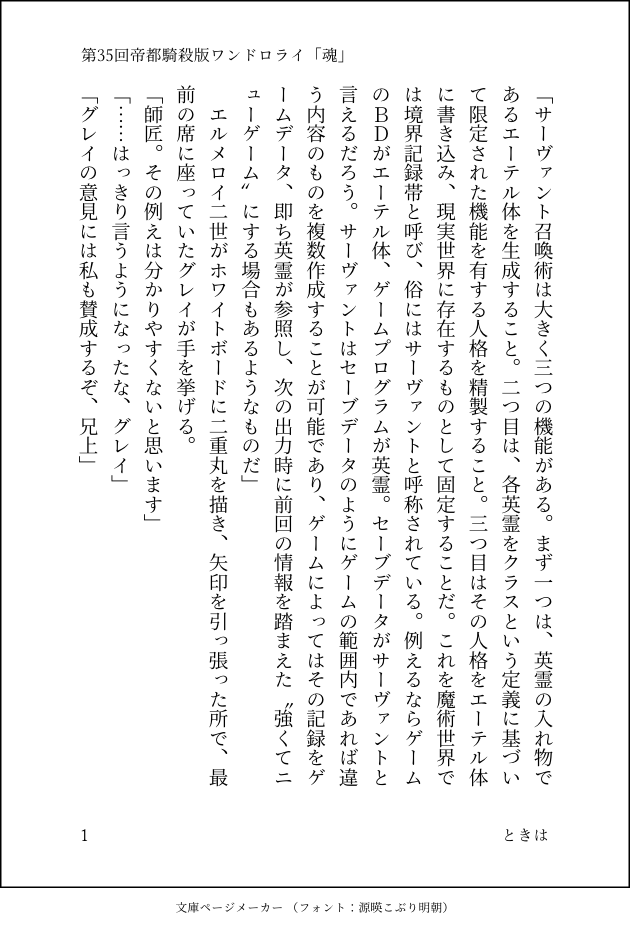 第35回帝都騎殺版ワンドロライ「魂」
「サーヴァント召喚術は大きく三つの機能がある。まず一つは、英霊の入れ物で
あるエーテル体を生成すること。二つ目は、各英霊をクラスという定義に基づい
て限定された機能を有する人格を精製すること。三つ目はその人格をエーテル体
に書き込み、現実世界に存在するものとして固定することだ。これを魔術世界で
は境界記録帯と呼び、俗にはサーヴァントと呼称されている。例えるならゲーム
のBDがエーテル体、ゲームプログラムが英霊。セーブデータがサーヴァントと
言えるだろう。サーヴァントはセーブデータのようにゲームの範囲内であれば違
う内容のものを複数作成することが可能であり、ゲームによってはその記録をゲ
ームデータ、即ち英霊が参照し、次の出力時に前回の情報を踏まえた〝強くてニ
ューゲーム〟にする場合もあるようなものだ」
　エルメロイ二世がホワイトボードに二重丸を描き、矢印を引っ張った所で、最
前の席に座っていたグレイが手を挙げる。
「師匠。その例えは分かりやすくないと思います」
「……はっきり言うようになったな、グレイ」
「グレイの意見には私も賛成するぞ、兄上」
ときは
1
文庫ページメーカー（フォント：源暎こぶり明朝）